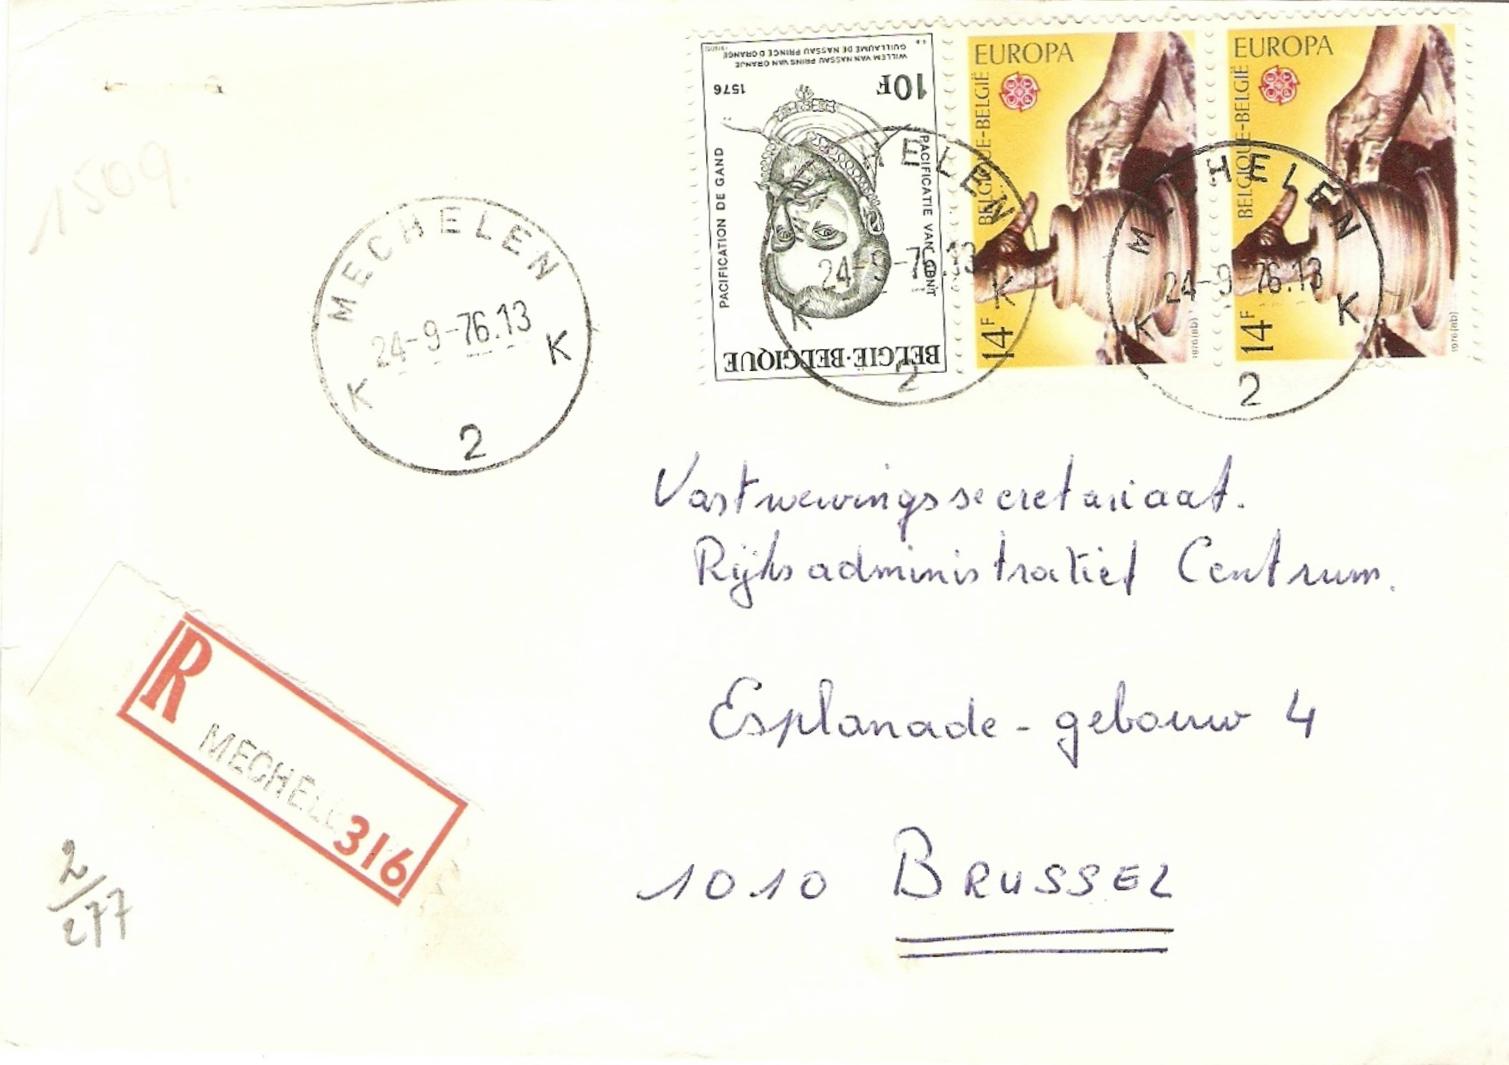 WILLEM VAN NASSAU PRINS VAN ORANJE
GUILLAUME DE NASSAU PRINCE D'ORANGE
1576 10F
PACIFICATION DE GAND
PACIFICATIE VAN GENT
BELGIË-BELGIQUE
EUROPA
BELGIQUE-BELGIË
14F
1976(8b)
EUROPA
BELGIQUE-BELGIË
14F
1976(8b)
1509
MECHELEN
24-9-76.13
K K
2
ELEN
24-9-76.13
K K
2
M HELEN
24-9-76.13
K K
2
Vastwervingssecretariaat.
Rijksadministratief Centrum.
Esplanade - gebouw 4
1010 BRUSSEL
R
MECHEL
316
2/277